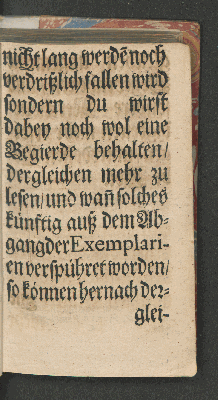 nicht lang werdē noch
verdrißlich fallen wird
sondern du wirst
dabey noch wol eine
Begierde behalten/
dergleichen mehr zu
lesen/ und wañ solches
künftig auß dem Ab-
gang der Exemplari-
en verspühret worden/
so können hernach der-
glei-